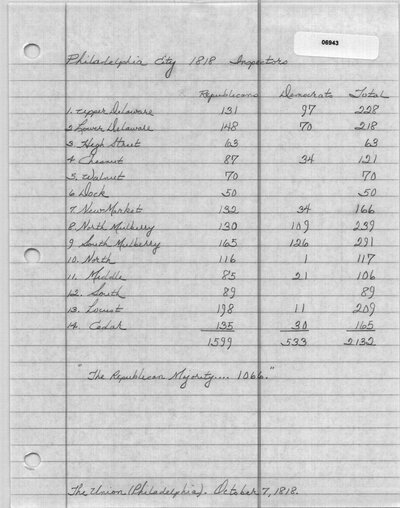 06943
Philadelphia City 1818 Inspectors
Republicans Democrats Total
1. Upper Delaware 131 97 228
2. Lower Delaware 148 70 218
3. High Street 63 63
4. Chesnut 87 34 121
5. Walnut 70 70
6. Dock 50 50
7. New Market 132 34 166
8. North Mulberry 130 109 239
9. South Mulberry 165 126 291
10. North 116 1 117
11. Middle 85 21 106
12. South 89 89
13. Locust 198 11 209
14. Cedar 135 30 165
1599 533 2132
"The Republican Majority.... 1066."
The Union (Philadelphia). October 7, 1818.